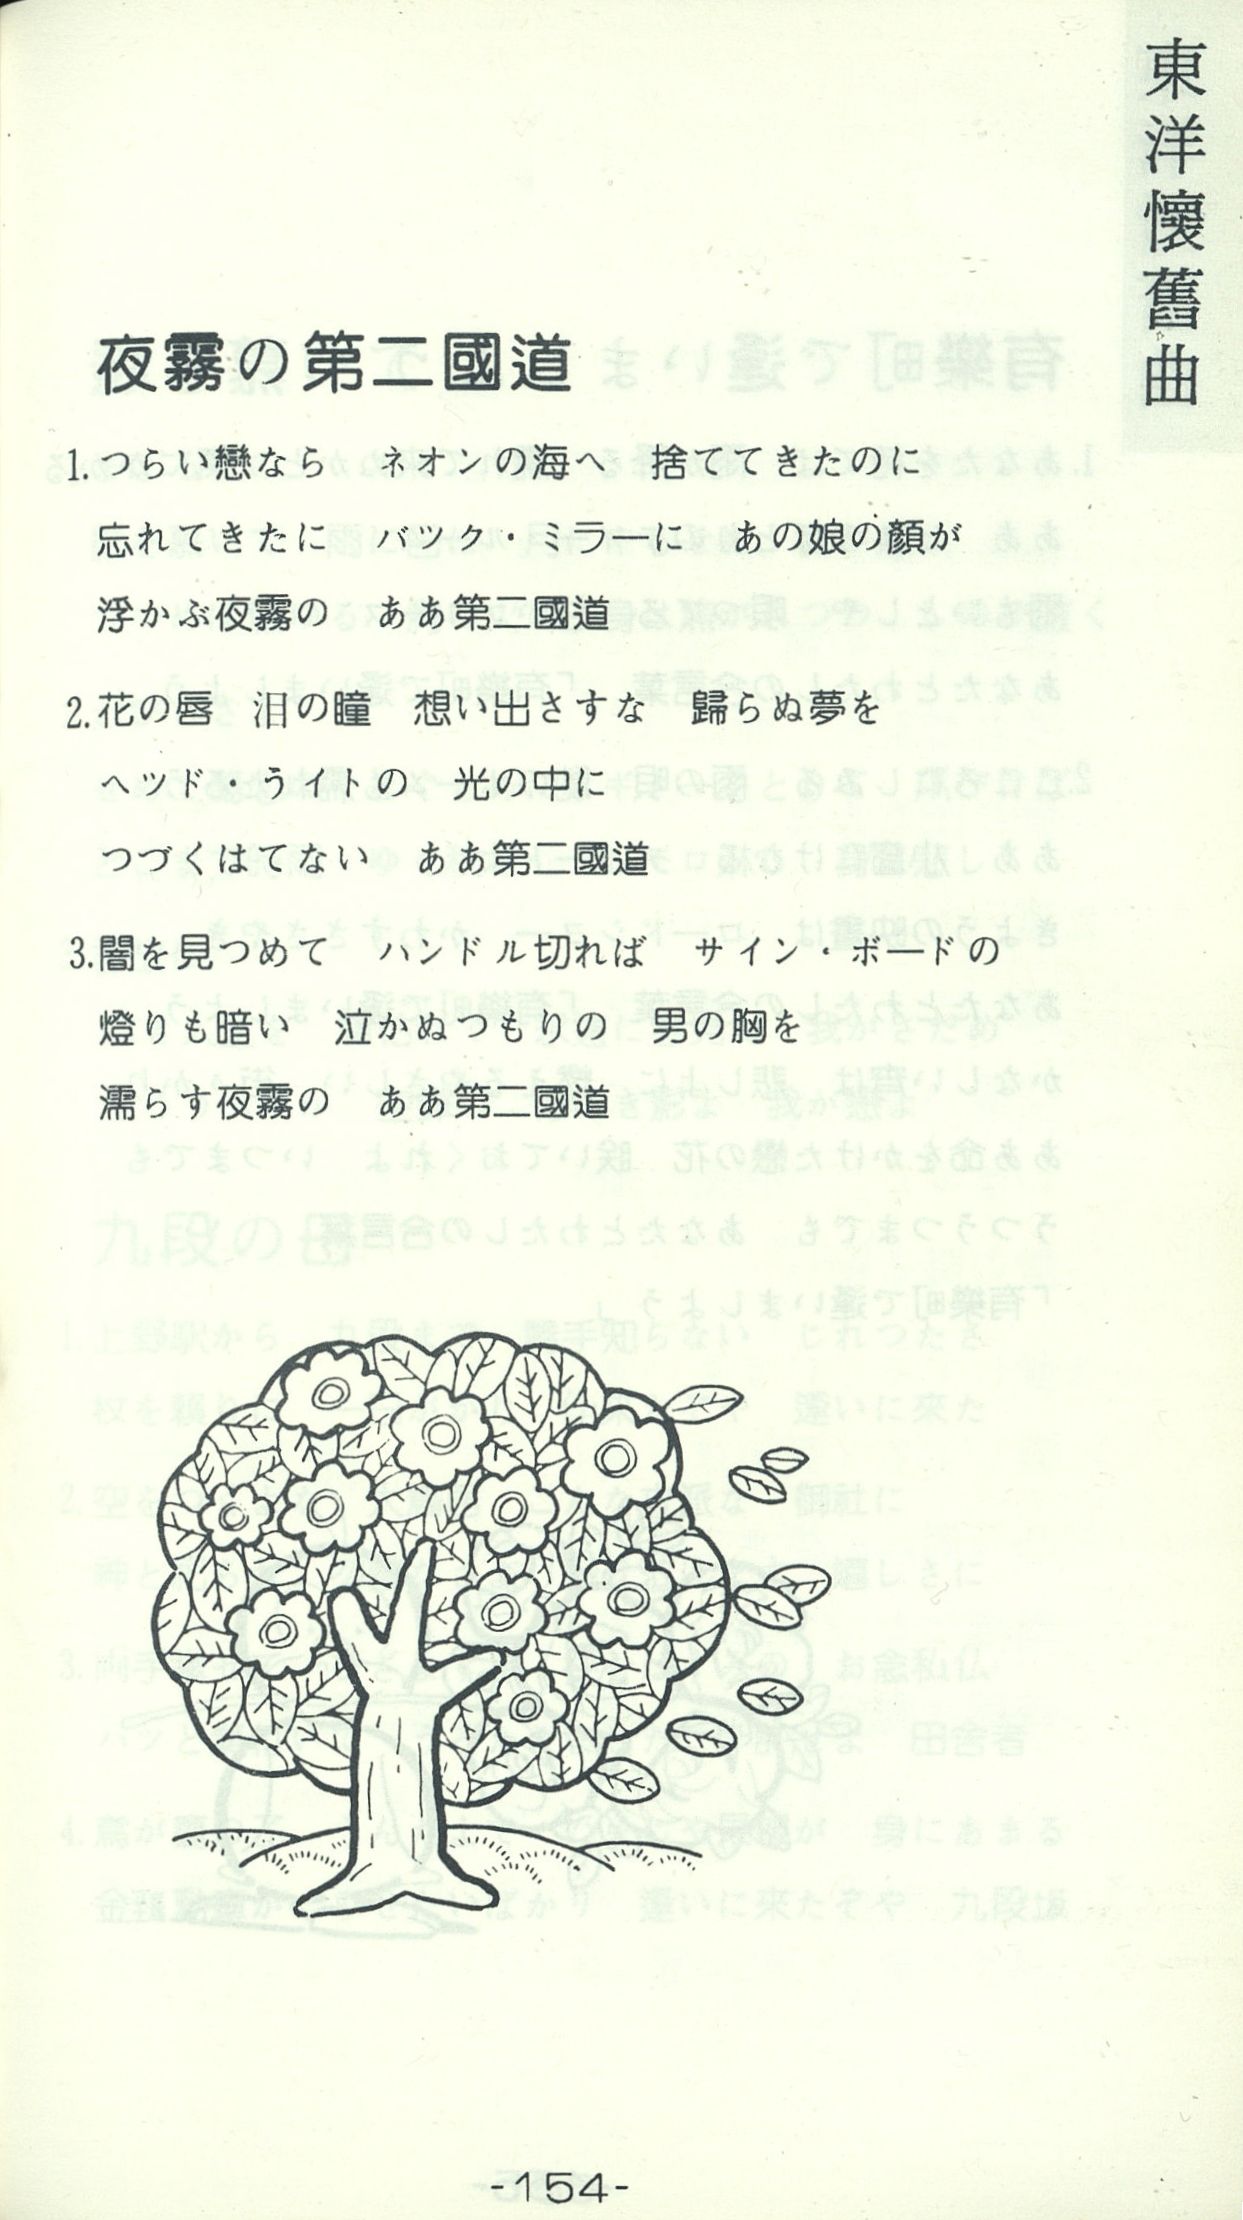 東洋懷舊曲
夜霧の第二國道
1.つらい戀なら　ネオンの海へ　捨ててきたのに
忘れてきたに　バツク・ミラーに　あの娘の顏が
浮かぶ夜霧の　ああ第二國道
2.花の唇　泪の瞳　想い出さすな　歸らぬ夢を
ヘツド・うイトの　光の中に
つづくはてない　ああ第二國道
3.闇を見つめて　ハンドル切れば　サイン・ボードの
燈りも暗い　泣かぬつもりの　男の胸を
濡らす夜霧の　ああ第二國道
-154-